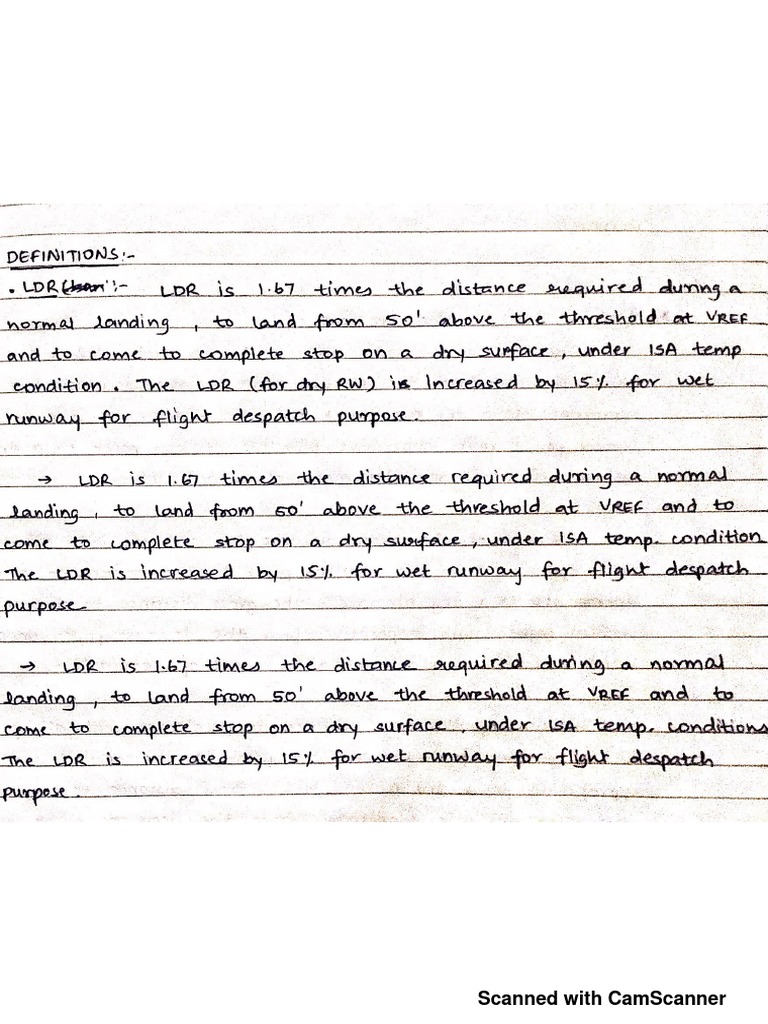 DEFINITIONS:-
• LDR :- LDR is 1.67 times the distance required during a
normal landing, to land from 50' above the threshold at VREF
and to come to complete stop on a dry surface, under ISA temp
condition. The LDR (for dry RW) is Increased by 15% for wet
runway for flight despatch purpose.
→ LDR is 1.67 times the distance required during a normal
landing, to land from 50' above the threshold at VREF and to
come to complete stop on a dry surface, under ISA temp. condition
The LDR is increased by 15% for wet runway for flight despatch
purpose
→ LDR is 1.67 times the distance required during a normal
landing, to land from 50' above the threshold at VREF and to
come to complete stop on a dry surface, under ISA temp. conditions
The LDR is increased by 15% for wet runway for flight despatch
purpose.
Scanned with CamScanner